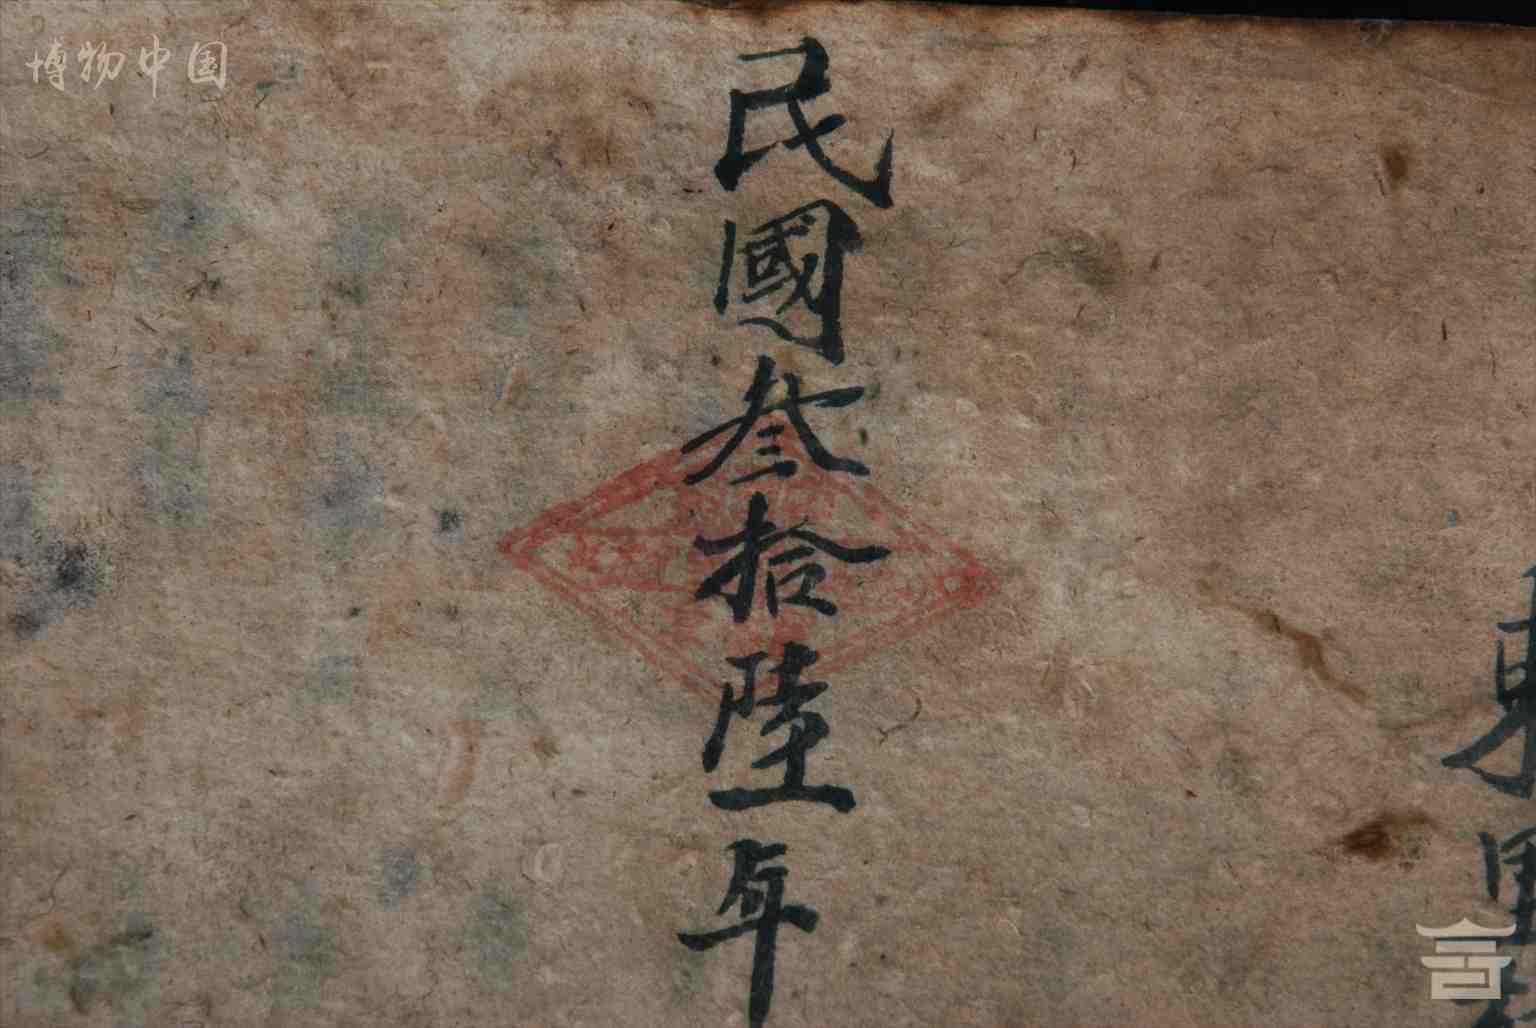 博物中国
民國叁拾陸年
東